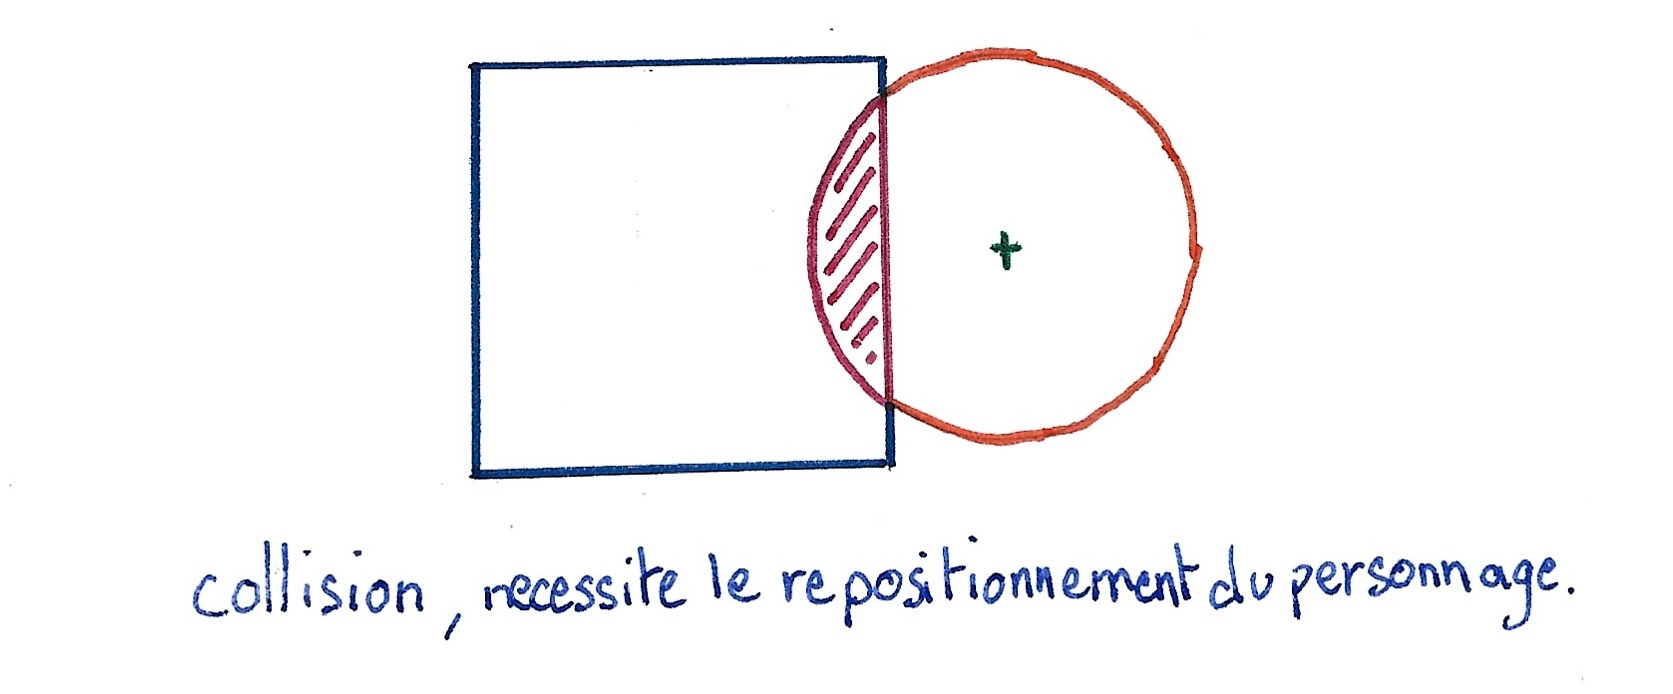 collision, necessite le repositionnement du personnage.